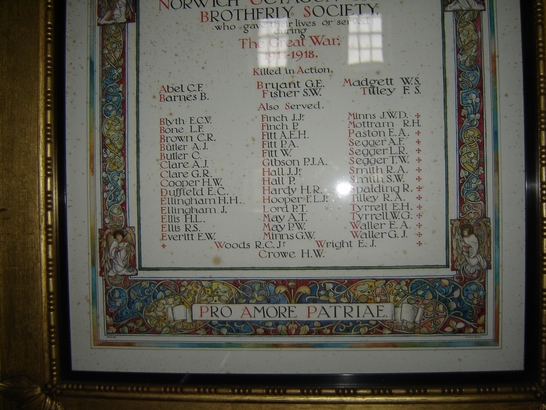 NORWICH OCTAGON
BROTHERLY SOCIETY
who gave their lives or served
during
The Great War.
-1918.
Killed in Action.
Abel C.F. Bryant G.E. Madgett W.S.
Barnes B. Fisher S.W. Tilley F. S.
Also Served.
Blyth E.C.W. Finch J.Jr. Minns J.W.D.
Bone L.F. Finch P. Mottram R.H.
Brown C.R. Fitt A.E.H. Paston E.A.
Butler A.J. Fitt P.A. Segger A.F.
Butler C. Fitt W. Segger L.R.
Clare A.J. Gibson P.J.A. Segger T.W.
Clare G.R. Hall J.Jr. Smith R.A.
Cooper H.W. Hall P. Smith S.W.
Duffield E.C. Hardy H.R. Spalding R.
Ellingham H.H. Hooper F.L.Jr. Tilley R.A.
Ellingham J. Lord P.T. Tyrrell E.H.
Ellis H.L. May A.T. Tyrrell W.G.
Ellis R.S. May P.W. Waller E.A.
Everitt E.W. Minns G.W. Waller G.J.
Woods R.C.Jr. Wright E.J.
Crowe H.W.
PRO AMORE PATRIAE.